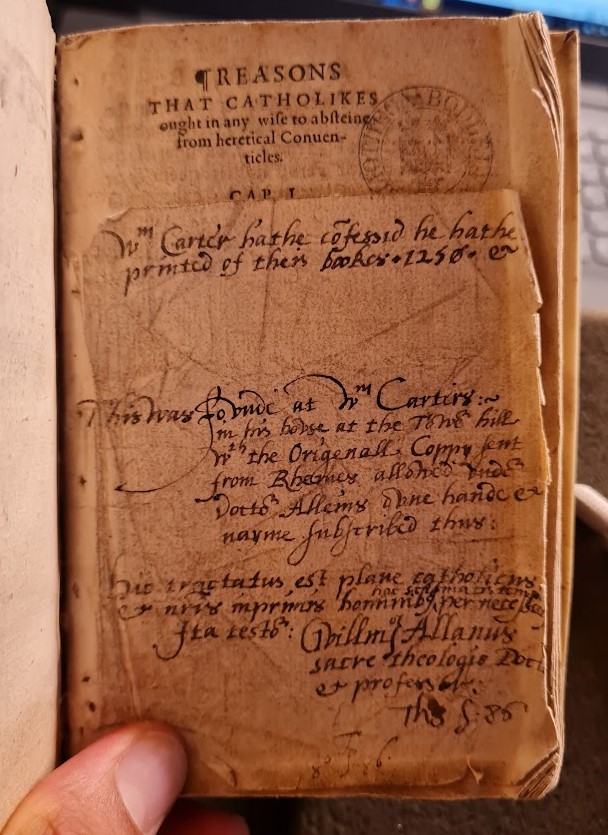 ¶REASONS
THAT CATHOLIKES
ought in any wise to absteine
from heretical Conuen-
ticles.
CAP. I.
Wm Carter hathe cōfessid he hathe
printed of theis bookes • 1250 • &
This was fovnde at Wm Carters:~
in his howse at the Towr hill
wth the Origenall Coppy sent
from Rhemes allowed vnder
Doctor Allens owne hande &
nayme subscribed thus:
Hic tractatus est plane catholicus
hoc schismatis temp
& nris inprimis hominibus pernecess
Ita testor: Gvillmus Allanus
sacre theologie Doct
& professor: